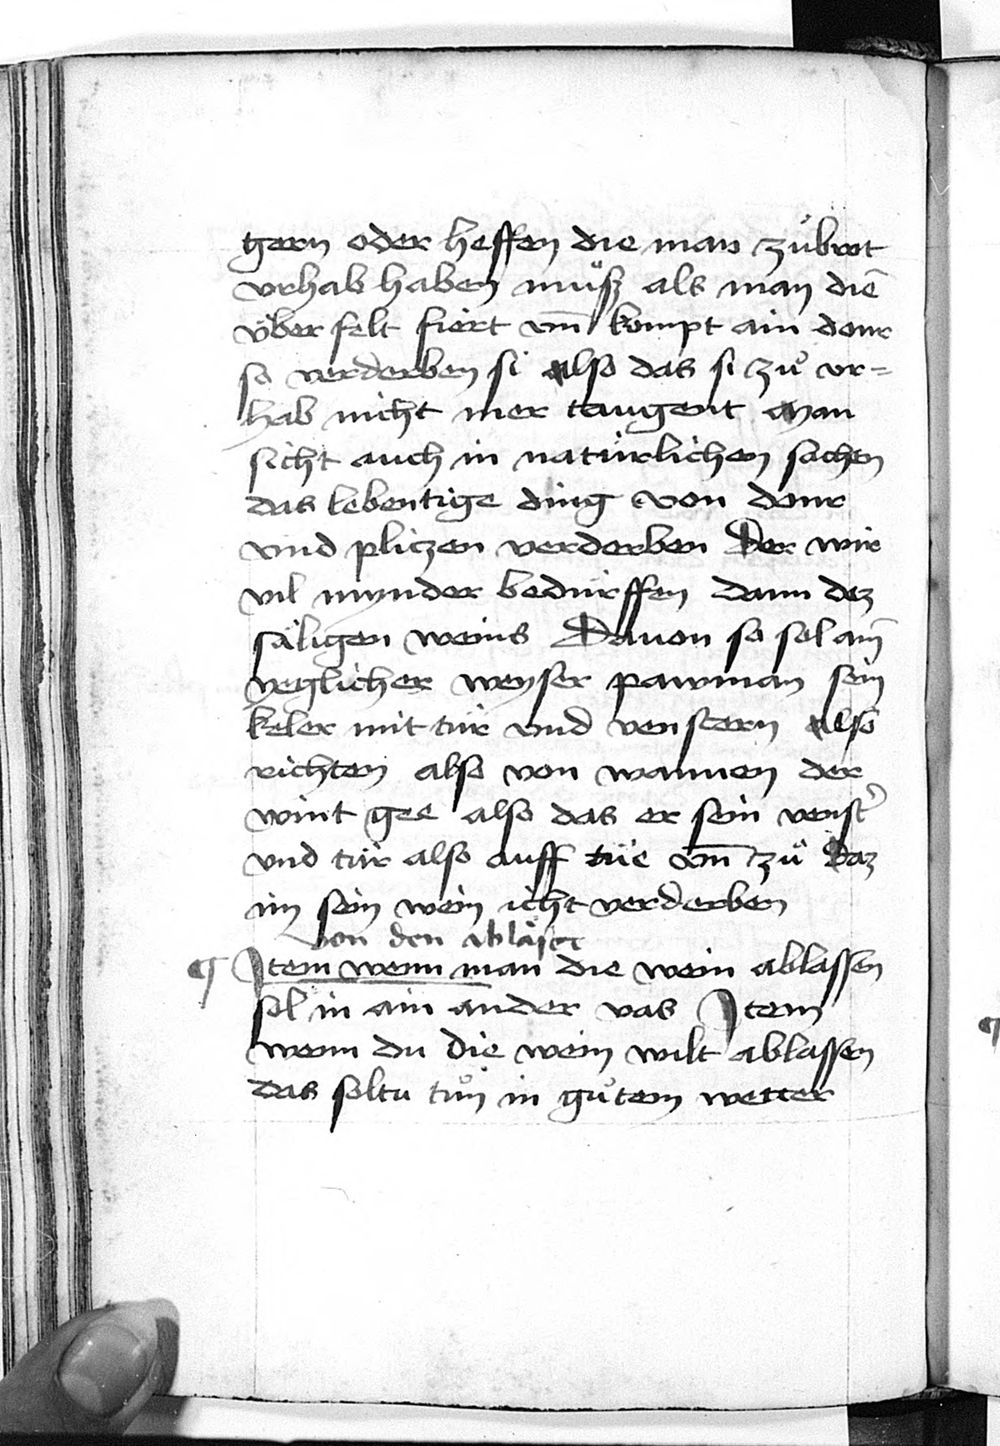 gern oder heffen die man zůbrot
vrhab haben můsz als man die̅
vͤber felt fiert vn̅ kompt ain donr
so verderben si also das si zů vr=
hab nicht mer taugent man
sicht auch in natürlichen sachen
das lebentige ding von donr
vnd pliczen verderben Der wir
vil mynder bedürffen dann dez
säligen weins Dauon so sol ain̅
yeglicher weyser pawman sein
keler mit tür vnd venstern also
richten also von wannen der
wint gee also das er sein venst’
vnd tür also auff tüe vn̅ zů daz
im sein wein icht verderben
von den abläsen
¶ Item wenn man die wein ablassen
sol in ain ander vas Item
wenn du die wein wilt ablassen
das soltu tůn in gůtem wetter
¶